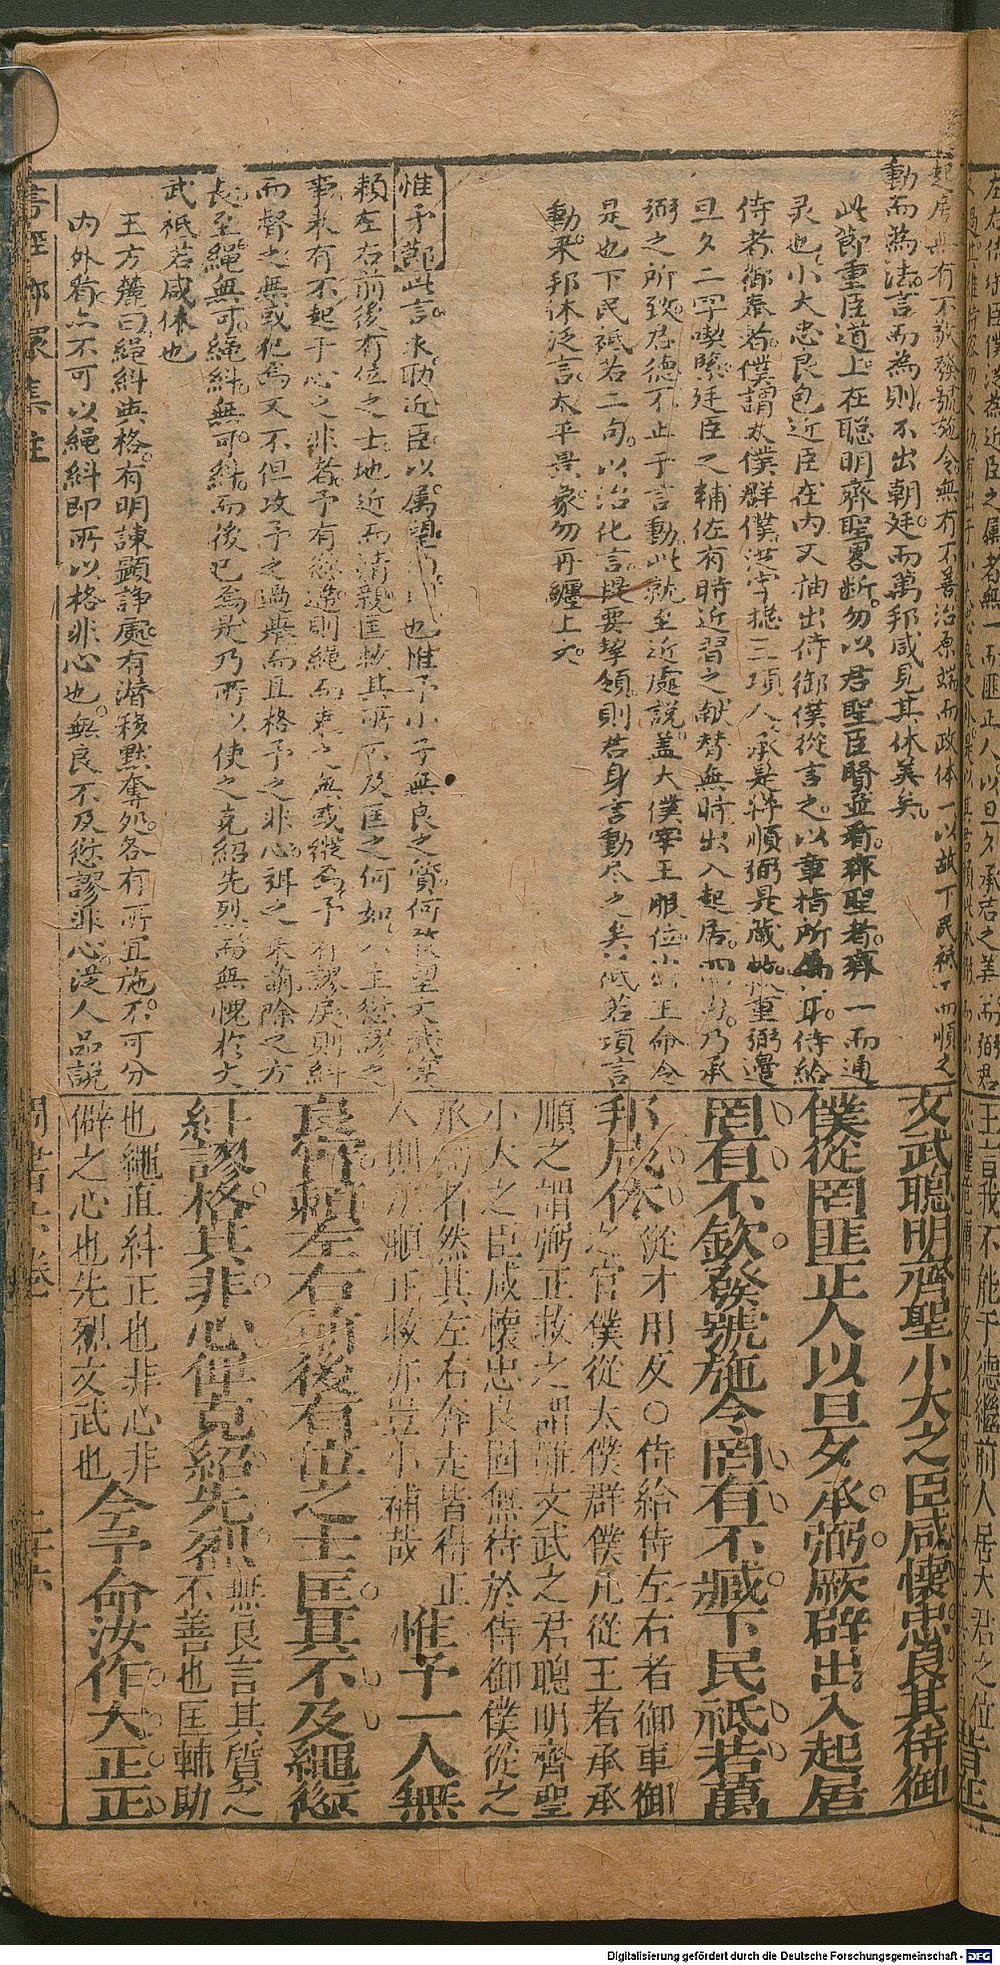 動而為法言而為則不出朝廷而萬邦咸見其休美矣
此節重臣道上在聰明齊聖畧断勿以君聖臣賢並看齊聖者齊一而通
灵也小大忠良包近臣在内又抽出侍御僕從言之以重指所屬耳侍給
侍者御奉者僕謂太僕群僕從字摠三項人承是将順弼是箴故重弼邊
旦夕二字喫緊廷臣之輔佐有時近習之献替無時出入起居乃承
弼之所致君德不止于言動此就至近處說盖大僕宰王服位出王命令
是也下民祇若二句以治化言提要挈領則君身言動尽之矣祇若項言
動来邦休泛言太平景象勿再纏上文
惟予節此言求助近臣以屬望也惟予小子無良之質何望文武
頼左右前後有位之士地近而情親匡救其所不及匡之何如人主愆謬之
事未有不起于心之非者予有愆過則繩而束之無或縱焉予有謬戾則糾
而督之無或犯焉又不但攻予之過舉而且格予之非心潛除之方
長至繩無可繩糾無可糾而後已焉是乃所以使之克紹先烈而無愧於文
武祇若咸休也
王方麓曰繩糾與格有明諫顯諍處有潛移黙奪処各有所宜施不可分
内外看亦不可以繩糾即所以格非心也無良不及愆謬非心從人品說
文武聰明齊聖小大之臣咸懷忠良其侍御
僕從罔匪正人以旦夕承弼厥辟出入起居
罔有不欽發號施令罔有不臧下民祇若萬
邦咸休 從才用反○侍給侍左右者御車御
之官僕從太僕群僕凡從王者承承
順之謂弼正救之謂雖文武之君聰明齊聖
小大之臣咸懷忠良固無待於侍御僕從之
承弼者然其左右奔走皆得正
人則承順正救亦豈小補哉 惟予一人無
良實頼左右前後有位之士匡其不及繩愆
糾謬格其非心俾克紹先烈 無良言其質之
不善也匡輔助
也繩直糾正也非心非
僻之心也先烈文武也 今予命汝作大正正
書經
集註
周書
Digitalisierung gefördert durch die Deutsche Forschungsgemeinschaft - DFG